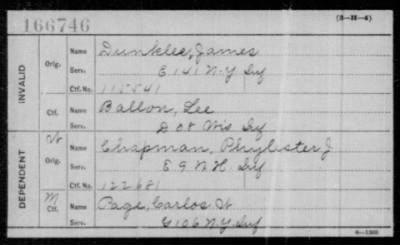 166746 (3-38-6)
INVALID
Orig. Name Dunklee, James
Serv. E 141 N-Y Inf
Ctf. No. 115541
Ctf. Name Ballon, Lee
Serv. D 08 Wis Inf
DEPENDENT
W Orig. Name Chapman, Phylister J
Serv. E 9 N.H. Inf
Ctf. No. 122681
M Ctf. Name Page, Carlos W
Serv. G 106 N.Y. Inf